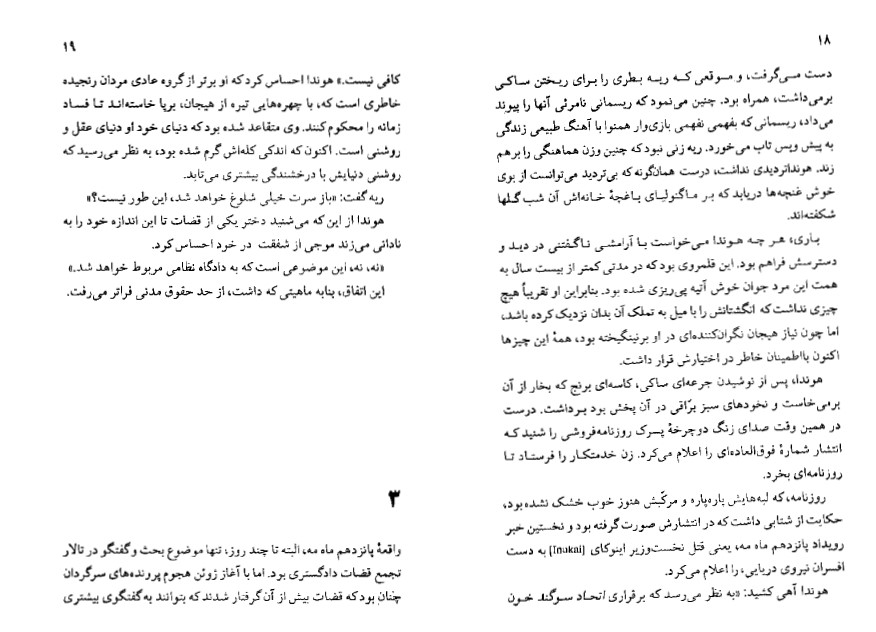 ۱۸
دست می‌گرفت، و موقعی که ریه بطری را برای ریختن ساکی
برمی‌داشت، همراه بود. چنین می‌نمود که ریسمانی نامرئی آنها را پیوند
می‌داد، ریسمانی که بفهمی نفهمی بازی‌وار همنوا با آهنگ طبیعی زندگی
به پیش و پس تاب می‌خورد. ریه زنی نبود که چنین وزن هماهنگی را برهم
زند. هونداتردیدی نداشت، درست همان‌گونه که بی‌تردید می‌توانست از بوی
خوش غنچه‌ها دریابد که بر ماگنولیای باغچهٔ خانه‌اش آن شب گلها
شکفته‌اند.
باری، هر چه هوندا می‌خواست با آرامشی ناگفتنی در دید و
دسترسش فراهم بود. این قلمروی بود که در مدتی کمتر از بیست سال به
همت این مرد جوان خوش آتیه پی‌ریزی شده بود. بنابراین او تقریباً هیچ
چیزی نداشت که انگشتانش را با میل به تملک آن بدان نزدیک کرده باشد،
اما چون نیاز هیجان نگران‌کننده‌ای در او برنینگیخته بود، همهٔ این چیزها
اکنون بااطمینان خاطر در اختیارش قرار داشت.
هوندا، پس از نوشیدن جرعه‌ای ساکی، کاسه‌ای برنج که بخار از آن
برمی‌خاست و نخودهای سبز برّاقی در آن پخش بود برداشت. درست
در همین وقت صدای زنگ دوچرخهٔ پسرک روزنامه‌فروشی را شنید که
انتشار شمارهٔ فوق‌العاده‌ای را اعلام می‌کرد. زن خدمتکار را فرستاد تا
روزنامه‌ای بخرد.
روزنامه، که لبه‌هایش پاره‌پاره و مرکّبش هنوز خوب خشک نشده بود،
حکایت از شتابی داشت که در انتشارش صورت گرفته بود و نخستین خبر
رویداد پانزدهم ماه مه، یعنی قتل نخست‌وزیر اینوکای [Inukai] به دست
افسران نیروی دریایی، را اعلام می‌کرد.
هوندا آهی کشید: «به نظر می‌رسد که برقراری اتحاد سوگند خون
۱۹
کافی نیست.» هوندا احساس کرد که او برتر از گروه عادی مردان رنجیده
خاطری است که، با چهره‌هایی تیره از هیجان، برپا خاسته‌اند تا فساد
زمانه را محکوم کنند. وی متقاعد شده بود که دنیای خود او دنیای عقل و
روشنی است. اکنون که اندکی کله‌اش گرم شده بود، به نظر می‌رسید که
روشنی دنیایش با درخشندگی بیشتری می‌تابد.
ریه گفت: «باز سرت خیلی شلوغ خواهد شد، این طور نیست؟»
هوندا از این که می‌شنید دختر یکی از قضات تا این اندازه خود را به
نادانی می‌زند موجی از شفقت در خود احساس کرد.
«نه، نه، این موضوعی است که به دادگاه نظامی مربوط خواهد شد.»
این اتفاق، بنابه ماهیتی که داشت، از حد حقوق مدنی فراتر می‌رفت.
۳
واقعهٔ پانزدهم ماه مه، البته تا چند روز، تنها موضوع بحث وگفتگو در تالار
تجمع قضات دادگستری بود. اما با آغاز ژوئن هجوم پرونده‌های سرگردان
چنان بود که قضات بیش از آن گرفتار شدند که بتوانند به گفتگوی بیشتری